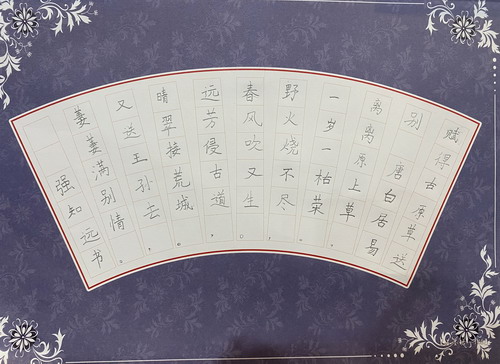 赋得古原草送
别
唐 白居易
离离原上草
一岁一枯荣
野火烧不尽
春风吹又生
远芳侵古道
晴翠接荒城
又送王孙去
萋萋满别情
强知远书